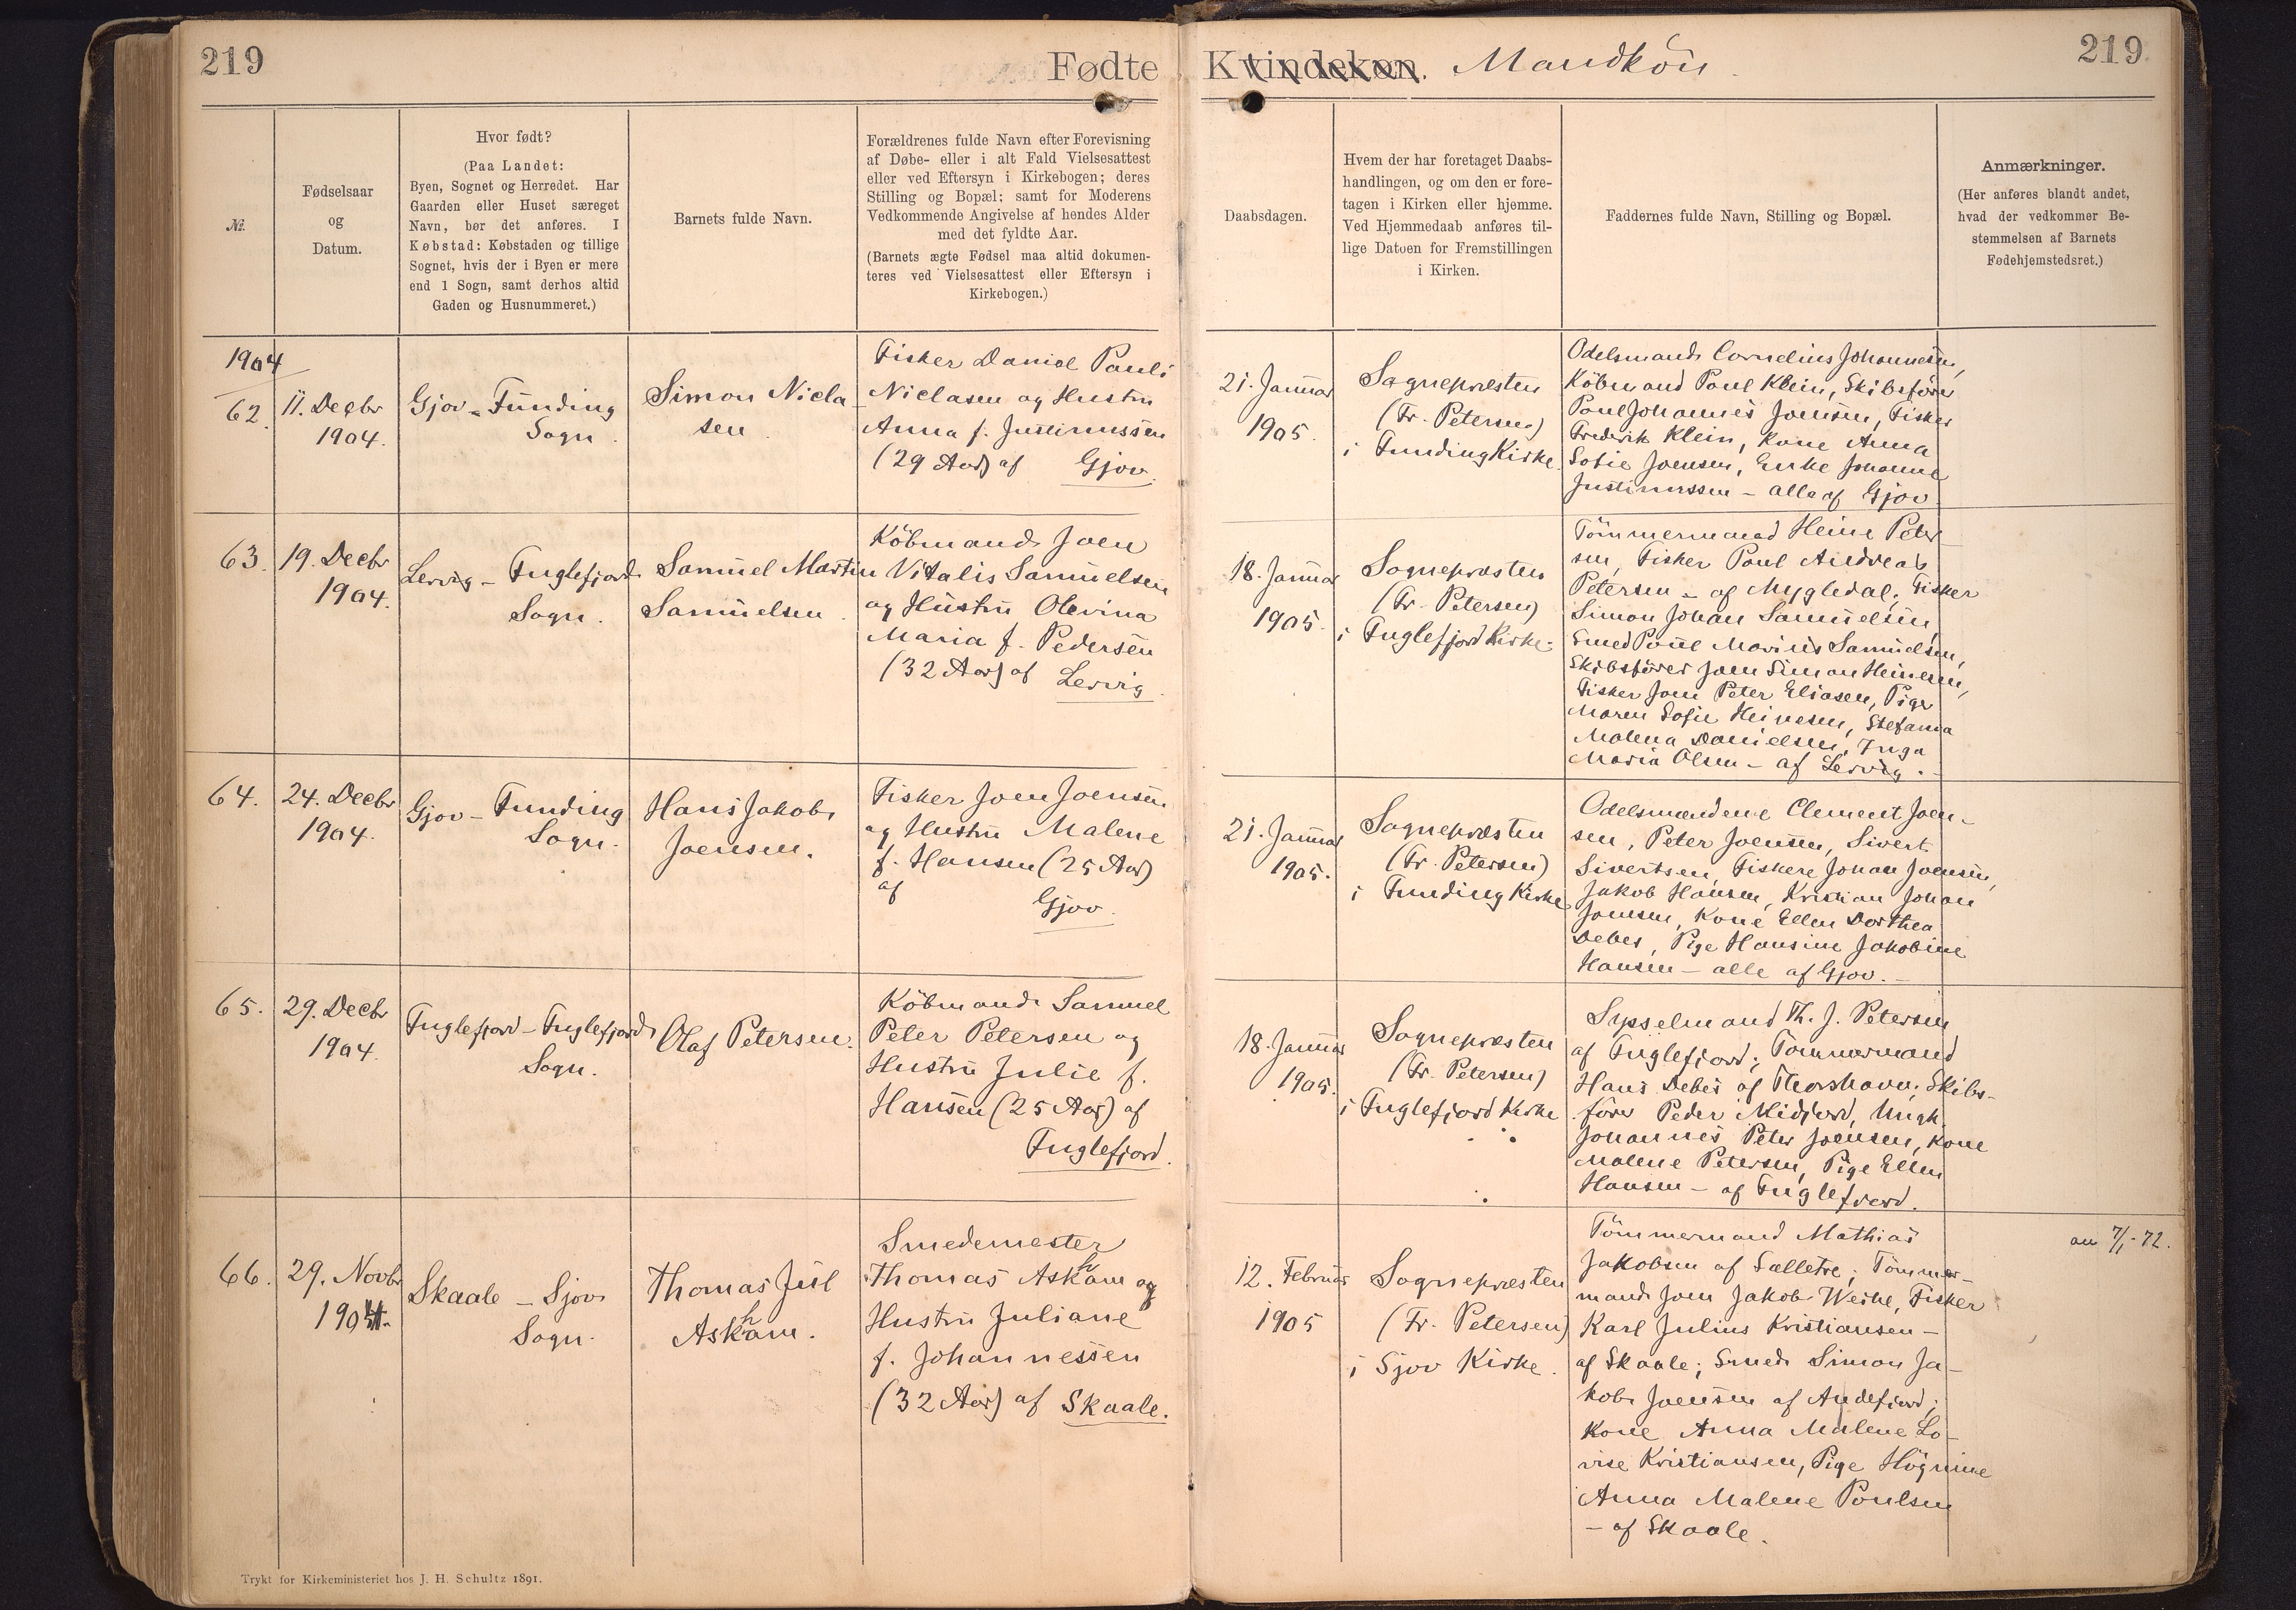 219
Fødte Kvindekøn. Mandkön.
219
№.
Fødselsaar
og
Datum.
Hvor født?
(Paa Landet:
Byen, Sognet og Herredet. Har
Gaarden eller Huset særeget
Navn, bør det anføres. I
Købstad: Købstaden og tillige
Sognet, hvis der i Byen er mere
end 1 Sogn, samt derhos altid
Gaden og Husnummeret.)
Barnets fulde Navn.
Forældrenes fulde Navn efter Forevisning
af Døbe- eller i alt Fald Vielsesattest
eller ved Eftersyn i Kirkebogen; deres
Stilling og Bopæl; samt for Moderens
Vedkommende Angivelse af hendes Alder
med det fyldte Aar.
(Barnets ægte Fødsel maa altid dokumen-
teres ved Vielsesattest eller Eftersyn i
Kirkebogen.)
Daabsdagen.
Hvem der har foretaget Daabs-
handlingen, og om den er fore-
tagen i Kirken eller hjemme.
Ved Hjemmedaab anføres til-
lige Datoen for Fremstillingen
i Kirken.
Faddernes fulde Navn, Stilling og Bopæl.
Anmærkninger.
(Her anføres blandt andet,
hvad der vedkommer Be-
stemmelsen af Barnets
Fødehjemstedsret.)
1904
62.
11. Decbr
1904.
Gjov - Funding
Sogn.
Simon Nicla-
sen.
Fisker Daniel Pauli
Niclasen og Hustru
Anna f. Justinussen
(29 Aar) af Gjov.
21. Januar
1905.
Sognepræsten
(Fr. Petersen)
i Funding Kirke.
Odelsmand Cornelius Johannesen,
Købmand Poul Klein, Skibsfører
Poul Johannes Joensen, Fisker
Frederik Klein, Kone Anna
Sofie Joensen, Enke Johanne
Justinussen - alle af Gjov.
63.
19. Decbr
1904.
Lervig - Fuglefjord
Sogn.
Samuel Martin
Samuelsen.
Köbmand Joen
Vitalis Samuelsen
og Hustru Olevina
Maria f. Pedersen
(32 Aar) af Lervig.
18. Januar
1905.
Sognepræsten
(Fr. Petersen)
i Fuglefjord Kirke.
Tömmermand Heine Peter-
sen, Fisker Poul Andreas
Petersen - af Mygledal; Fisker
Simon Johan Samuelsen,
Smed Poul Marius Samuelsen,
Skibsförer Joen Simon Heinesen,
Fisker Joen Peter Eliasen, Pige
Maren Sofie Heinesen, Stefania
Malena Danielsen, Inga
Maria Olsen - af Lervig.-
64.
24. Decbr
1904.
Gjov - Funding
Sogn.
Hans Jakob
Joensen.
Fisker Joen Joensen
og Hustru Malene
f. Hansen (25 Aar)
af Gjov.
21. Januar
1905.
Sognepræsten
(Fr. Petersen)
i Funding Kirke
Odelsmændene Clement Joen-
sen, Peter Joensen, Sivert
Sivertsen, Fiskere Johan Joensen,
Jakob Hansen, Kristian Johan
Joensen, Kone Ellen Dorthea
Debes, Pige Hansine Jakobine
Hansen - alle af Gjov.-
65.
29. Decbr
1904.
Fuglefjord - Fuglefjord
Sogn.
Olaf Petersen.
Köbmand Samuel
Peter Petersen og
Hustru Julie f.
Hansen (25 Aar) af
Fuglefjord.
18. Januar
1905.
Sognepræsten
(Fr. Petersen)
i Fuglefjord Kirke
Sysselmand Th. J. Petersen
af Fuglefjord; Tömmermand
Hans Debes af Thorshavn; Skibs-
förer Peder Midjord, Ungk.
Johannes Peter Joensen, Kone
Malene Petersen, Pige Ellen
Hansen - af Fuglefjord.
66.
29. Novbr
1904.
Skaale - Sjov
Sogn.
Thomas Juul
Askham.
Smedemester
Thomas Askham og
Hustru Juliane
f. Johannessen
(32 Aar) af Skaale.
12. Februar
1905
Sognepræsten
(Fr. Petersen)
i Sjov Kirke.
Tömmermand Mathias
Jakobsen af Sælletre; Tömmer-
mand Joen Jakob Weihe, Fisker
Karl Julius Kristiansen -
af Skaale; Smed Simon Ja-
kob Joensen af Andefjord;
Kone Anna Malene Lo-
vise Kristiansen, Pige Högnine
Anna Malene Poulsen
- af Skaale.
an 7/1-72.
Trykt for Kirkeministeriet hos J. H. Schultz 1891.